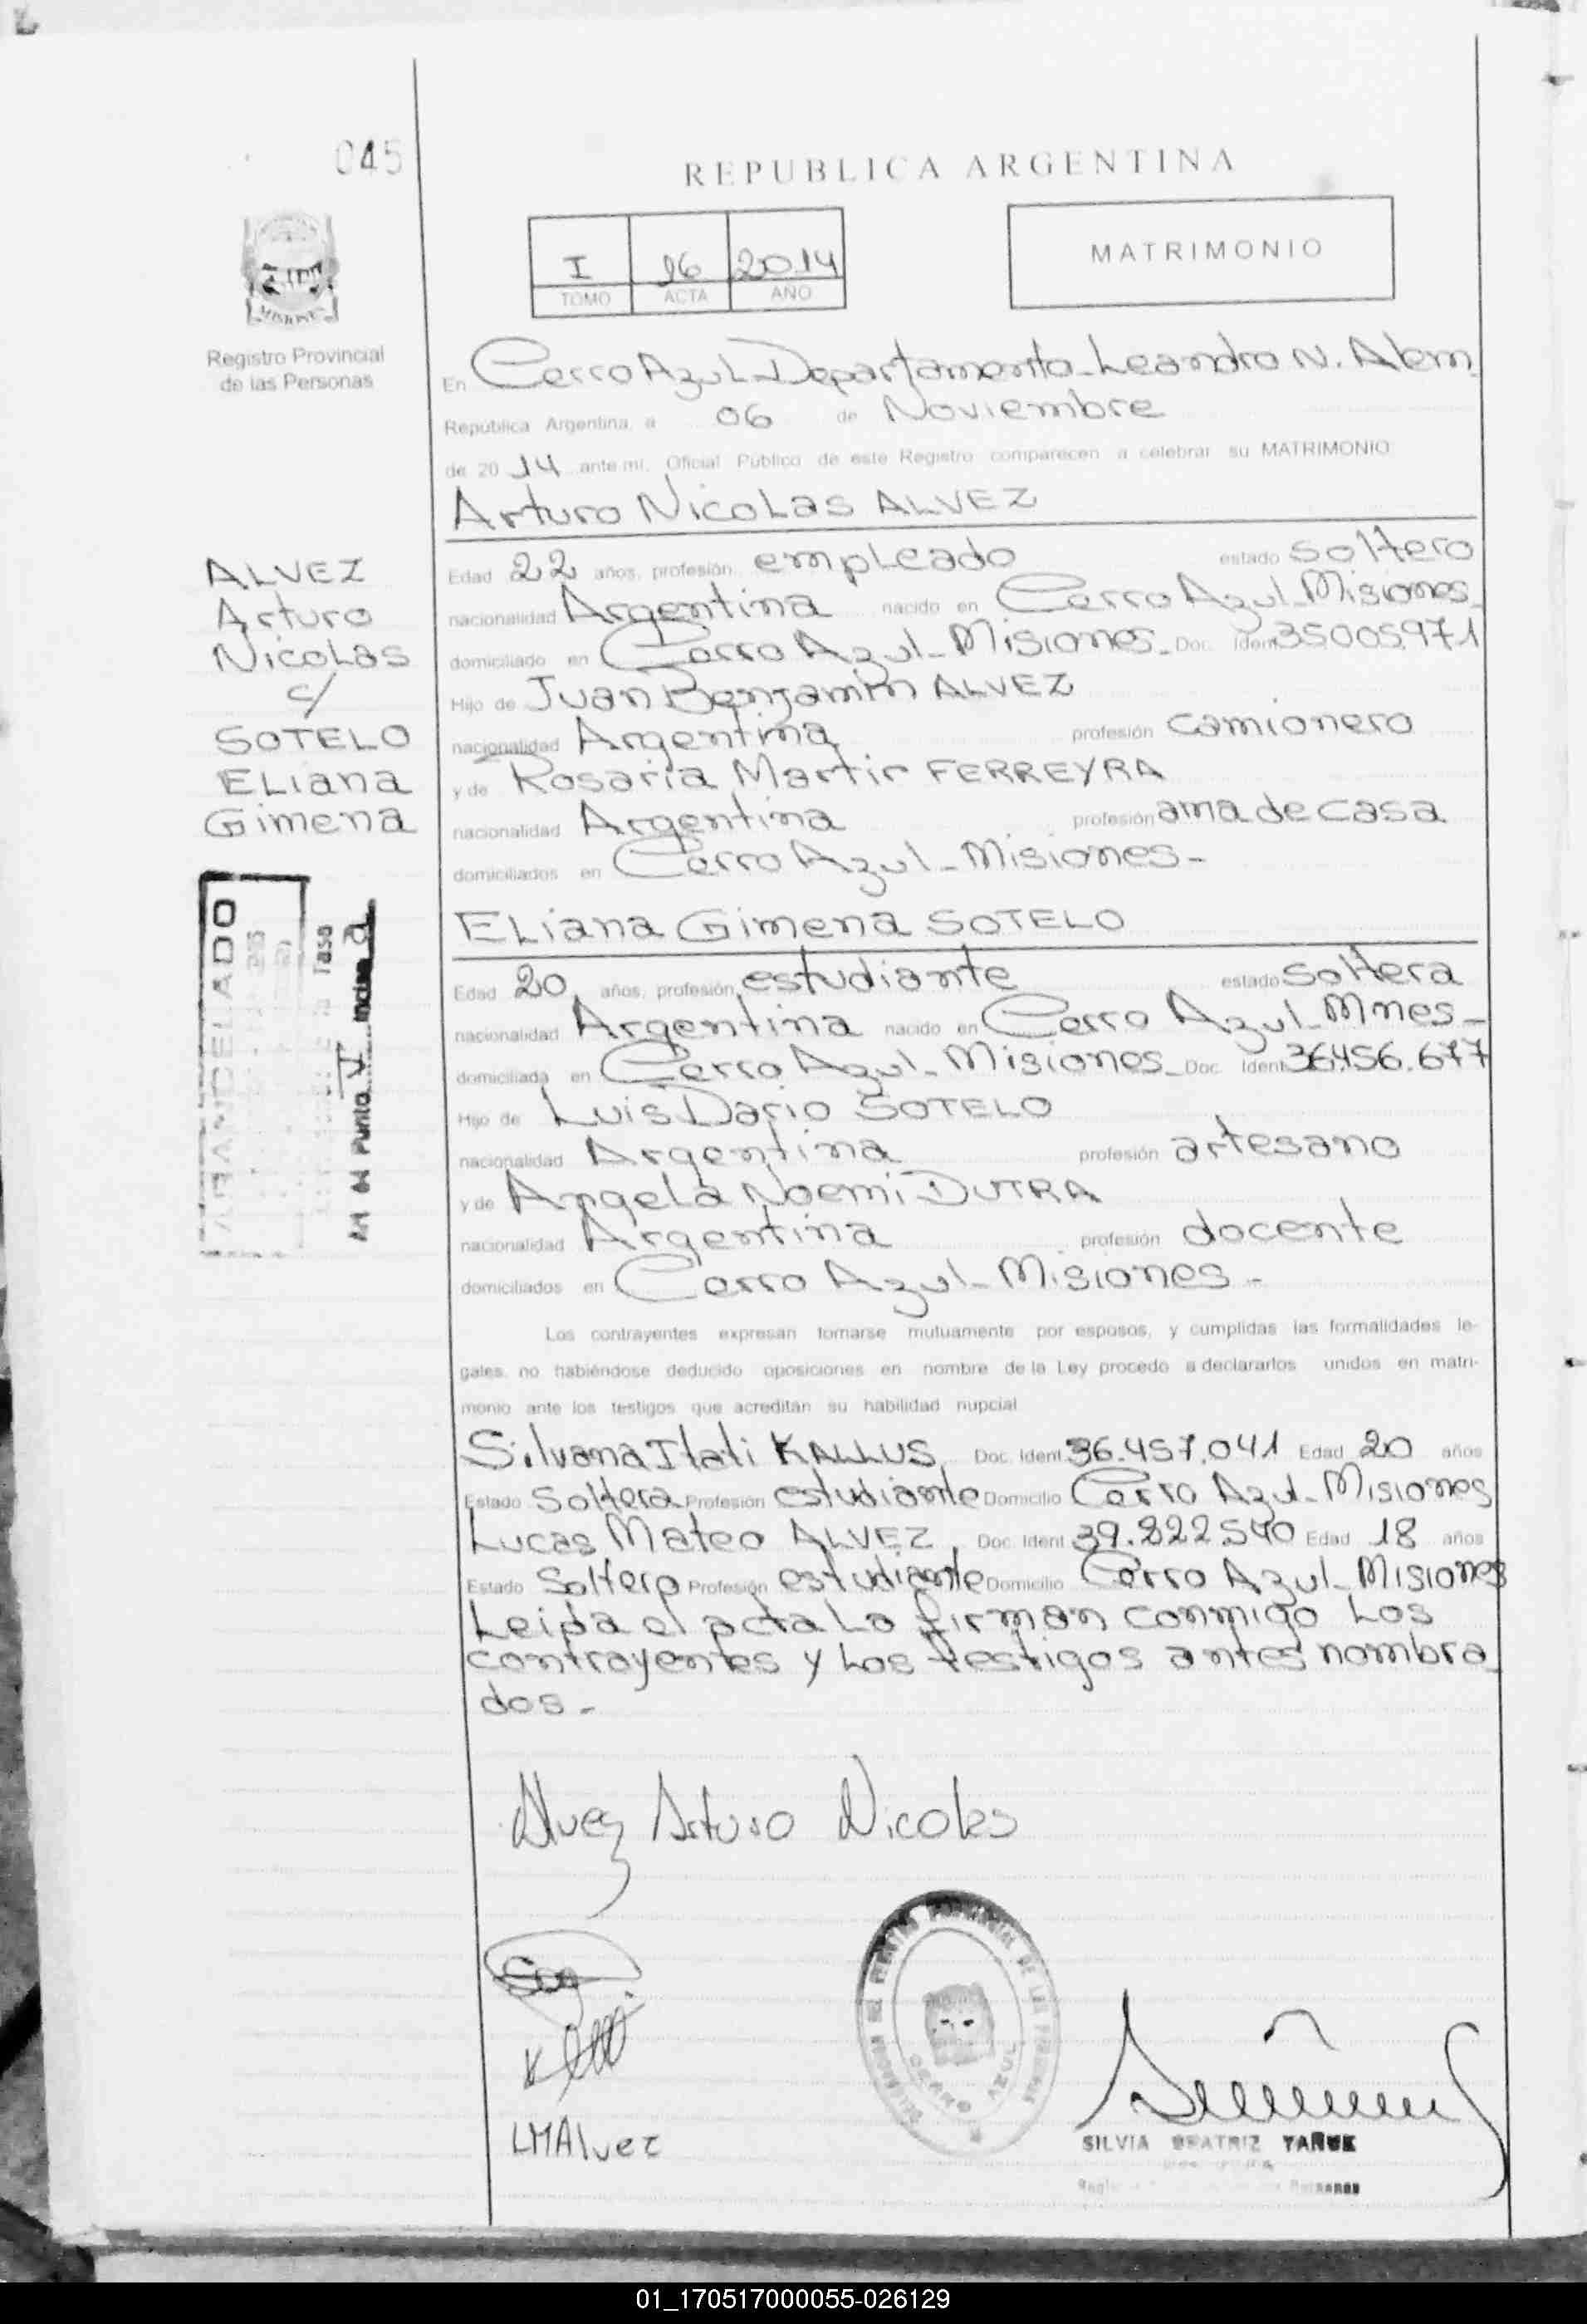 045
REPUBLICA ARGENTINA
I 26 2014
TOMO ACTA AÑO
MATRIMONIO
MISIONES
Registro Provincial
de las Personas
En Cerro Azul Departamento Leandro N. Alem
Republica Argentina, a 06 de Noviembre
de 20 14 ante mi, Oficial Público de este Registro comparecen a celebrar su MATRIMONIO
Arturo Nicolas ALVEZ
ALVEZ
Arturo
Nicolas
c/
SOTELO
Eliana
Gimena
Edad 22 años, profesión empleado estado soltero
nacionalidad Argentina nacido en Cerro Azul-Misiones-
domiciliado en Cerro Azul-Misiones- Doc. Ident 35005.971
Hijo de Juan Benjamin ALVEZ
nacionalidad Argentina profesión camionero
y de Rosaria Martir FERREYRA
nacionalidad Argentina profesión ama de casa
domiciliados en Cerro Azul-Misiones-
Eliana Gimena SOTELO
ARANCELADO
Tasa
Punto V inciso a
Edad 20 años, profesión, estudiante estado soltera
nacionalidad Argentina nacido en Cerro Azul-Mnes-
domiciliada en Cerro Azul-Misiones- Doc. Ident 36.456.677
Hijo de Luis Dario SOTELO
nacionalidad Argentina profesión artesano
y de Angela Noemi DUTRA
nacionalidad Argentina profesión docente
domiciliados en Cerro Azul-Misiones-
Los contrayentes expresan tomarse mutuamente por esposos, y cumplidas las formalidades le-
gales, no habiéndose deducido oposiciones en nombre de la Ley procedo a declararlos unidos en matri-
monio ante los testigos que acreditan su habilidad nupcial
Silvana Itati KALLUS, Doc. Ident 36.457.041 Edad 20 años
Estado Soltera Profesión estudiante Domicilio Cerro Azul-Misiones
Lucas Mateo ALVEZ, Doc. Ident 39.822.540 Edad 18 años
Estado Soltero Profesión estudiante Domicilio Cerro Azul-Misiones
Leida el acta la firman conmigo los
contrayentes y los testigos antes nombra
dos-
Alvez Arturo Nicolas
CERRO AZUL
LMAlvez
SILVIA BEATRIZ YAÑUK
01_170517000055-026129